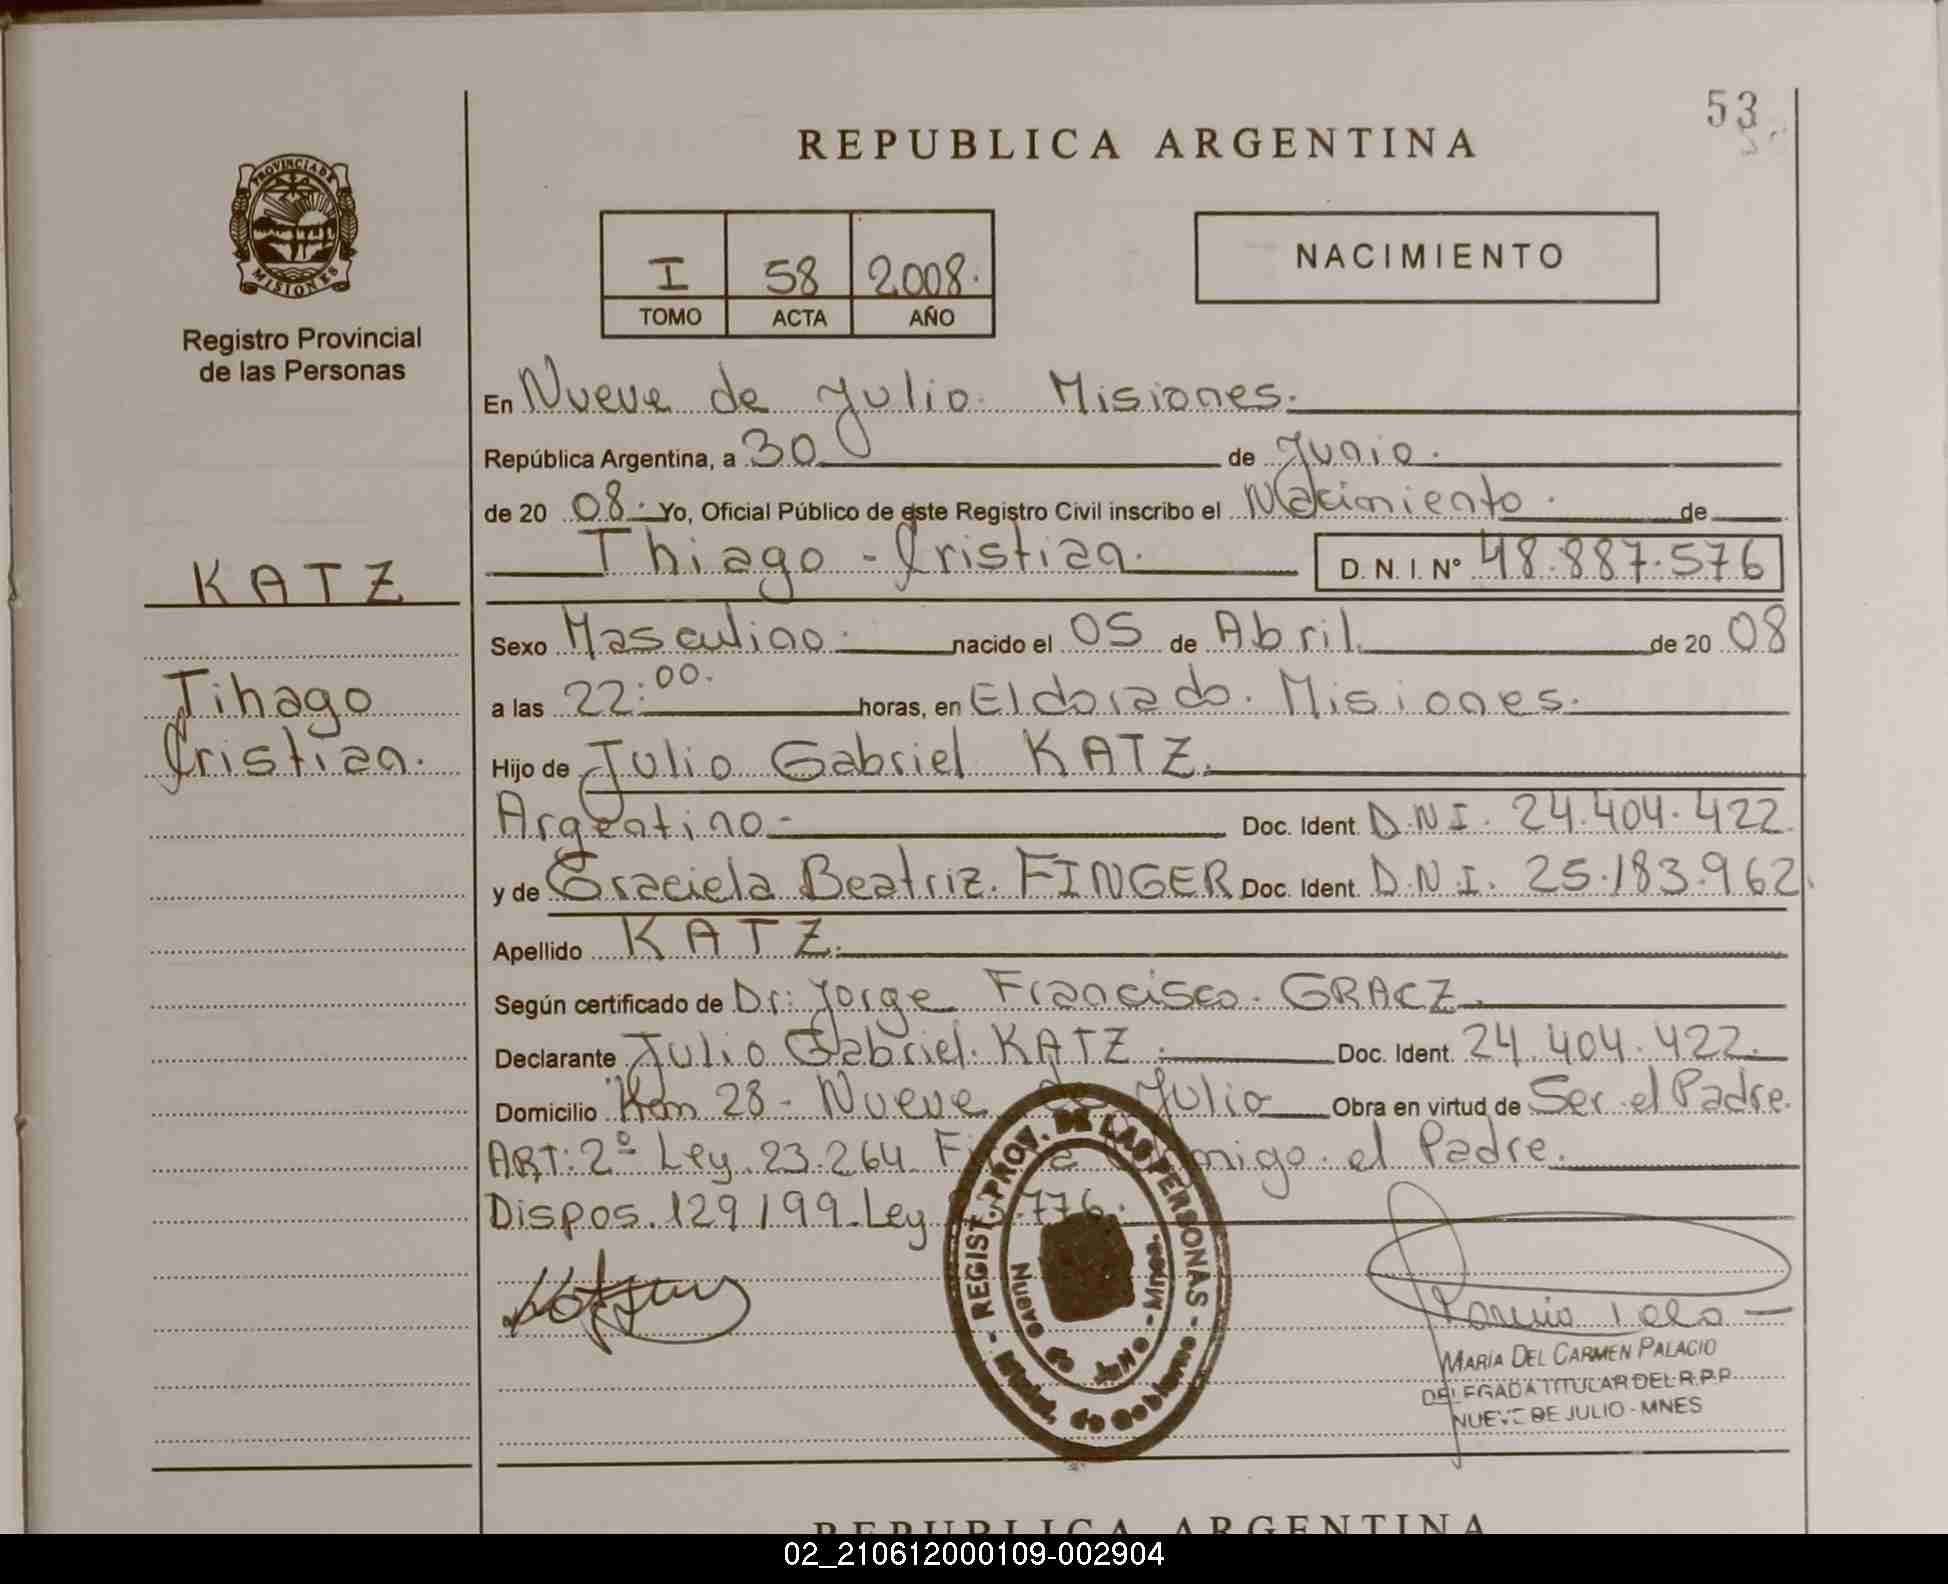 53
REPUBLICA ARGENTINA
PROVINCIA DE
MISIONES
Registro Provincial
de las Personas
I 58 2008.
TOMO ACTA AÑO
NACIMIENTO
En Nueve de Julio. Misiones.
República Argentina, a 30 de Junio.
de 20 08. Yo, Oficial Público de este Registro Civil inscribo el Nacimiento. de
Thiago - Cristian. D. N. I. N° 48.887.576
KATZ
Tihago
Cristian.
Sexo Masculino. nacido el 05 de Abril. de 20 08
a las 22:00. horas, en Eldorado. Misiones.
Hijo de Julio Gabriel KATZ.
Argentino- Doc. Ident. D.N.I. 24.404.422.
y de Graciela Beatriz. FINGER Doc. Ident. D.N.I. 25.183.962.
Apellido KATZ.
Según certificado de Dr: Jorge Francisco. GRACZ.
Declarante Julio Gabriel. KATZ. Doc. Ident. 24.404.422.
Domicilio Km 28 - Nueve de Julio Obra en virtud de Ser el Padre.
ART: 2º Ley 23.264 el Padre.
Dispos. 129/99. Ley 776.
REGIST. PROV. DE LAS PERSONAS
Nueve de Julio - Mnes.
MARÍA DEL CARMEN PALACIO
DELEGADA TITULAR DEL R.P.P.
NUEVE DE JULIO - MNES
REPUBLICA ARGENTINA
02_210612000109-002904